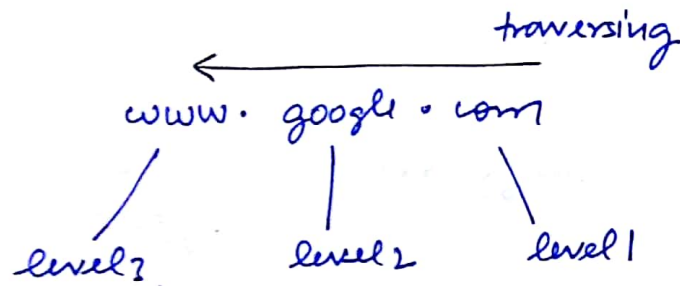 traversing
www. google. com
level3 level2 level1